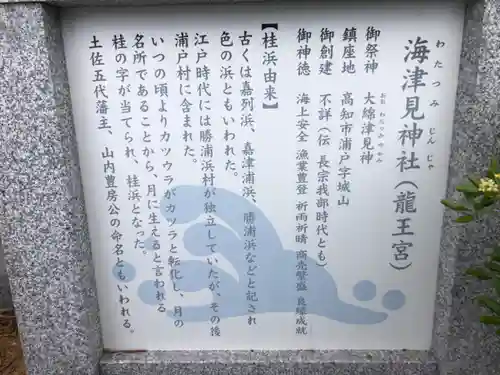 わたつみじんじゃ
海津見神社（龍王宮）
おおわたつみのかみ
御祭神　大綿津見神
鎮座地　高知市浦戸字城山
御創建　不詳（伝　長宗我部時代とも）
御神徳　海上安全　漁業豊登　祈雨祈晴　商売繁盛　良縁成就
【桂浜由来】
古くは嘉列浜、嘉津浦浜、勝浦浜などと記され
色の浜ともいわれた。
江戸時代には勝浦浜村が独立していたが、その後
浦戸村に含まれた。
いつの頃よりカツウラがカツラと転化し、月の
名所であることから、月に生えると言われる
桂の字が当てられ、桂浜となった。
土佐五代藩主、山内豊房公の命名ともいわれる。